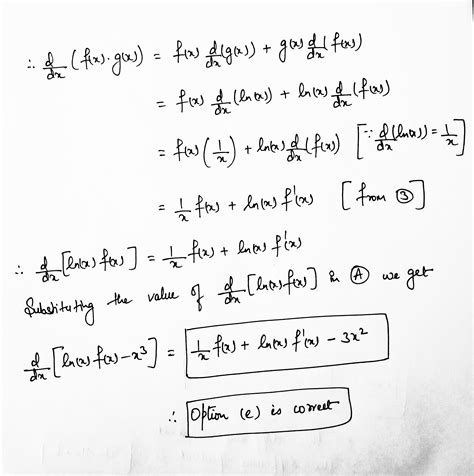 ∴ d/dx (f(x)·g(x)) = f(x) d/dx (g(x)) + g(x) d/dx (f(x))
= f(x) d/dx (ln(x)) + ln(x) d/dx (f(x))
= f(x) (1/x) + ln(x) d/dx (f(x)) [∵ d/dx (ln(x)) = 1/x]
= 1/x f(x) + ln(x) f'(x) [from ③]
∴ d/dx [ln(x) f(x)] = 1/x f(x) + ln(x) f'(x)
Substituting the value of d/dx [ln(x) f(x)] in Ⓐ we get
d/dx [ln(x) f(x) - x³] = 1/x f(x) + ln(x) f'(x) - 3x²
∴ Option (e) is correct